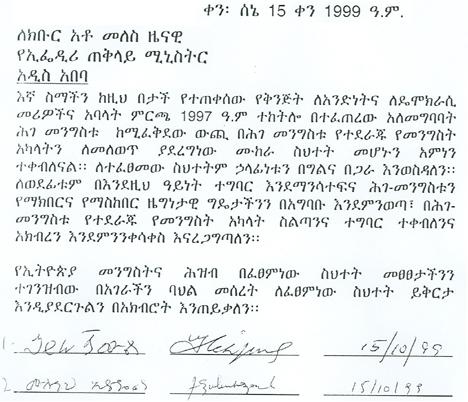 ቀን፡ ሰኔ 15 ቀን 1999 ዓ.ም.
ለክቡር አቶ መለስ ዜናዊ
የኢፌዲሪ ጠቅላይ ሚኒስትር
አዲስ አበባ
እኛ ስማችን ከዚህ በታች የተጠቀሰው የቅንጅት ለአንድነትና ለዴሞክራሲ
መሪዎችና አባላት ምርጫ 1997 ዓ.ም ተከትሎ በተፈጠረው አለመግባባት
ሕገ መንግስቱ ከሚፈቅደው ውጪ በሕገ መንግስቱ የተደራጁ የመንግስት
አካላትን ለመለወጥ ያደረግነው ሙከራ ስህተት መሆኑን አምነን
ተቀብለናል፡፡ ለተፈፀመው ስህተትም ኃላፊነቱን በግልና በጋራ እንወስዳለን፡፡
ለወደፊቱም በእንደዚህ ዓይነት ተግባር እንደማንሳተፍና ሕገ-መንግስቱን
የማክበርና የማስከበር ዜግነታዊ ግዴታችንን በአግባቡ እንደምንወጣ፣ በሕገ-
መንግስቱ የተደራጁ የመንግስት አካላት ስልጣንና ተግባር ተቀብለንና
አክብረን እንደምንንቀሳቀስ እናረጋግጣለን፡፡
የኢትዮጵያ መንግስትና ሕዝብ በፈፀምነው ስህተት መፀፀታችንን
ተገንዝብው በአገራችን ባህል መሰረት ለፈፀምነው ስህተት ይቅርታ
እንዲያደርጉልን በአክብሮት እንጠይቃለን፡፡
1. 15/10/99
2. 15/10/99